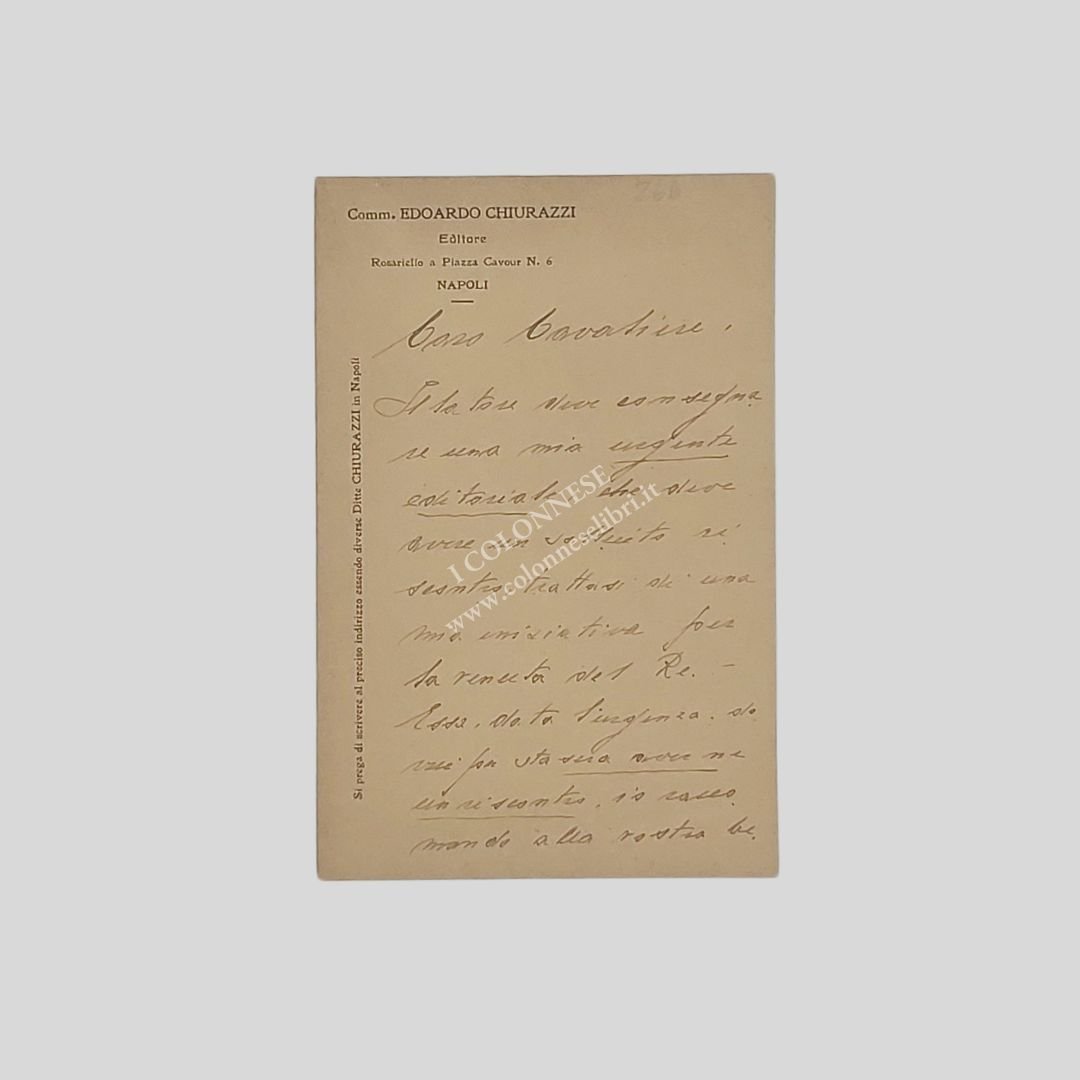 Comm. EDOARDO CHIURAZZI
Editore
Rosariello a Piazza Cavour N. 6
NAPOLI
Si prega di scrivere al preciso indirizzo essendo diverse Ditte CHIURAZZI in Napoli
Caro Cavaliere,
Il latore deve consegna
re una mia urgente
editoriale, che deve
avere un subito ri
scontro, trattasi di una
mia iniziativa per
la venuta del Re. —
Essa, data l'urgenza, do
vrei per stasera averne
un riscontro, io racco
mando alla vostra be.
I COLONNESE
www.colonneselibri.it